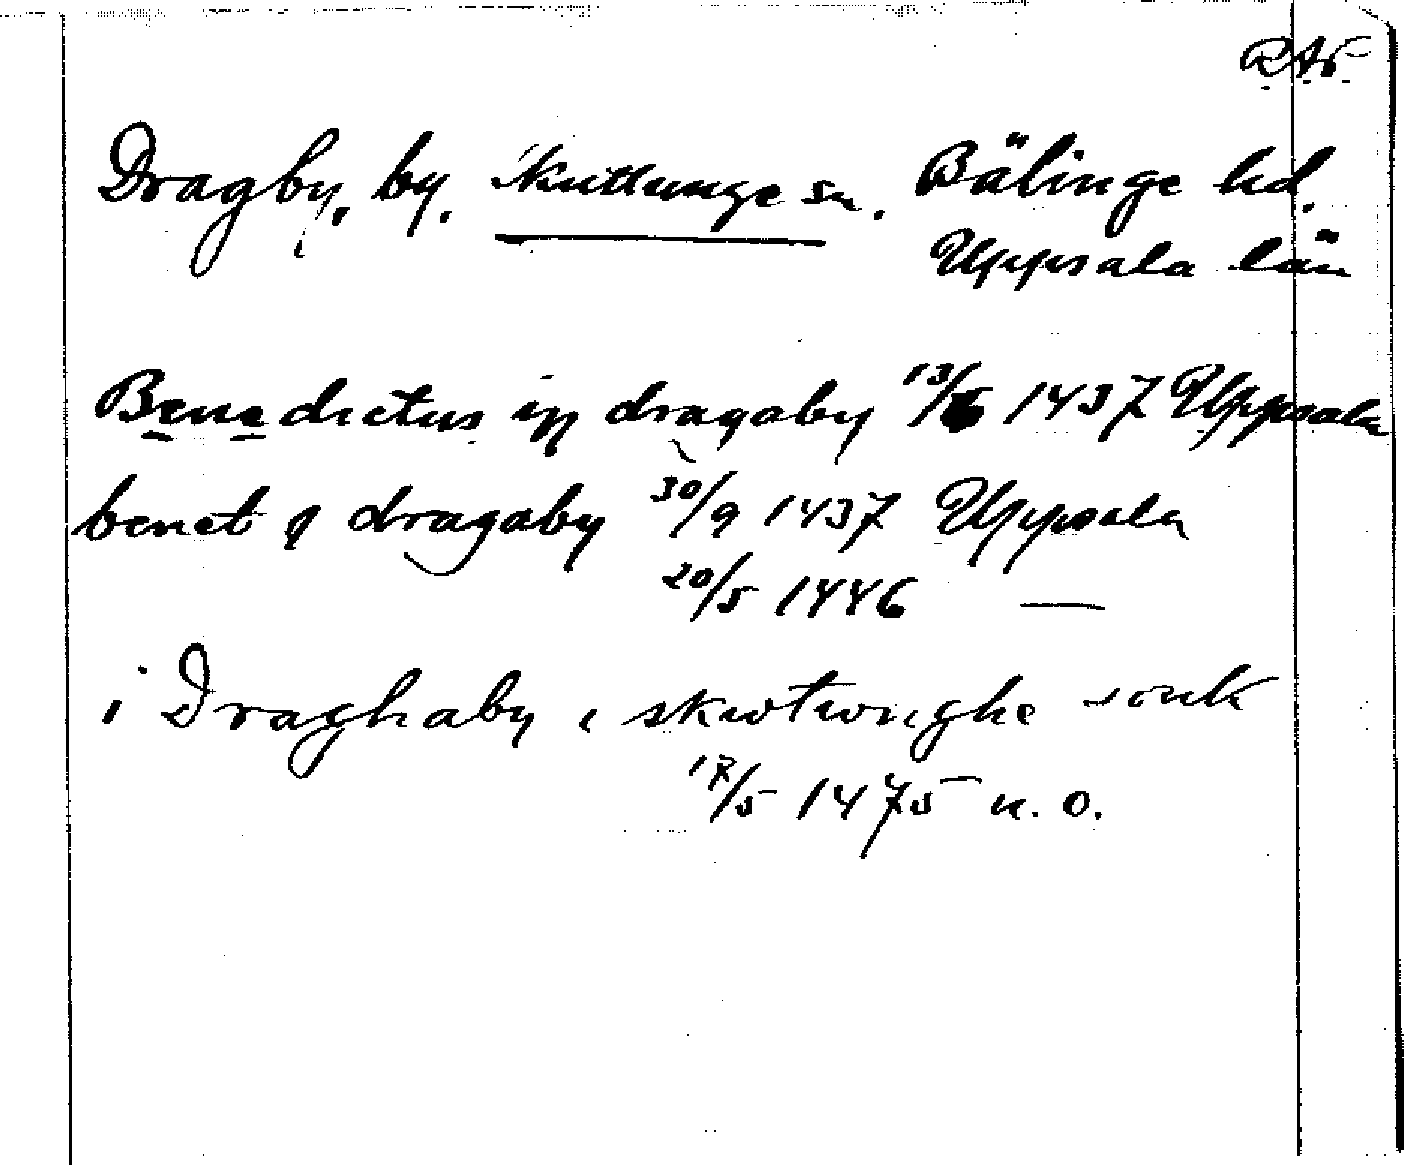 RAp
Dragby, by. Skuttunge sn. Bälinge hd.
Uppsala län
Benedictus in dragaby 13/6 1437 Uppsala
benet j dragaby 30/9 1437 Uppsala
20/5 1446 —
i Draghaby i skwtwnghe sonk
17/5 1475 u. o.